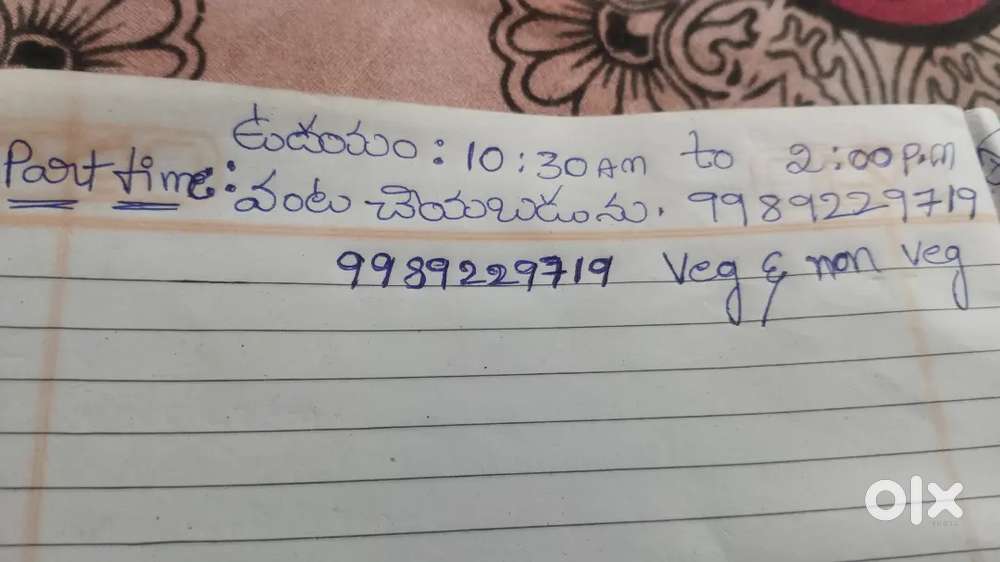 ఉదయం : 10:30 AM to 2:00 P.M
Part time : వంట చేయబడును. 9989229719
9989229719 Veg & non veg
olx